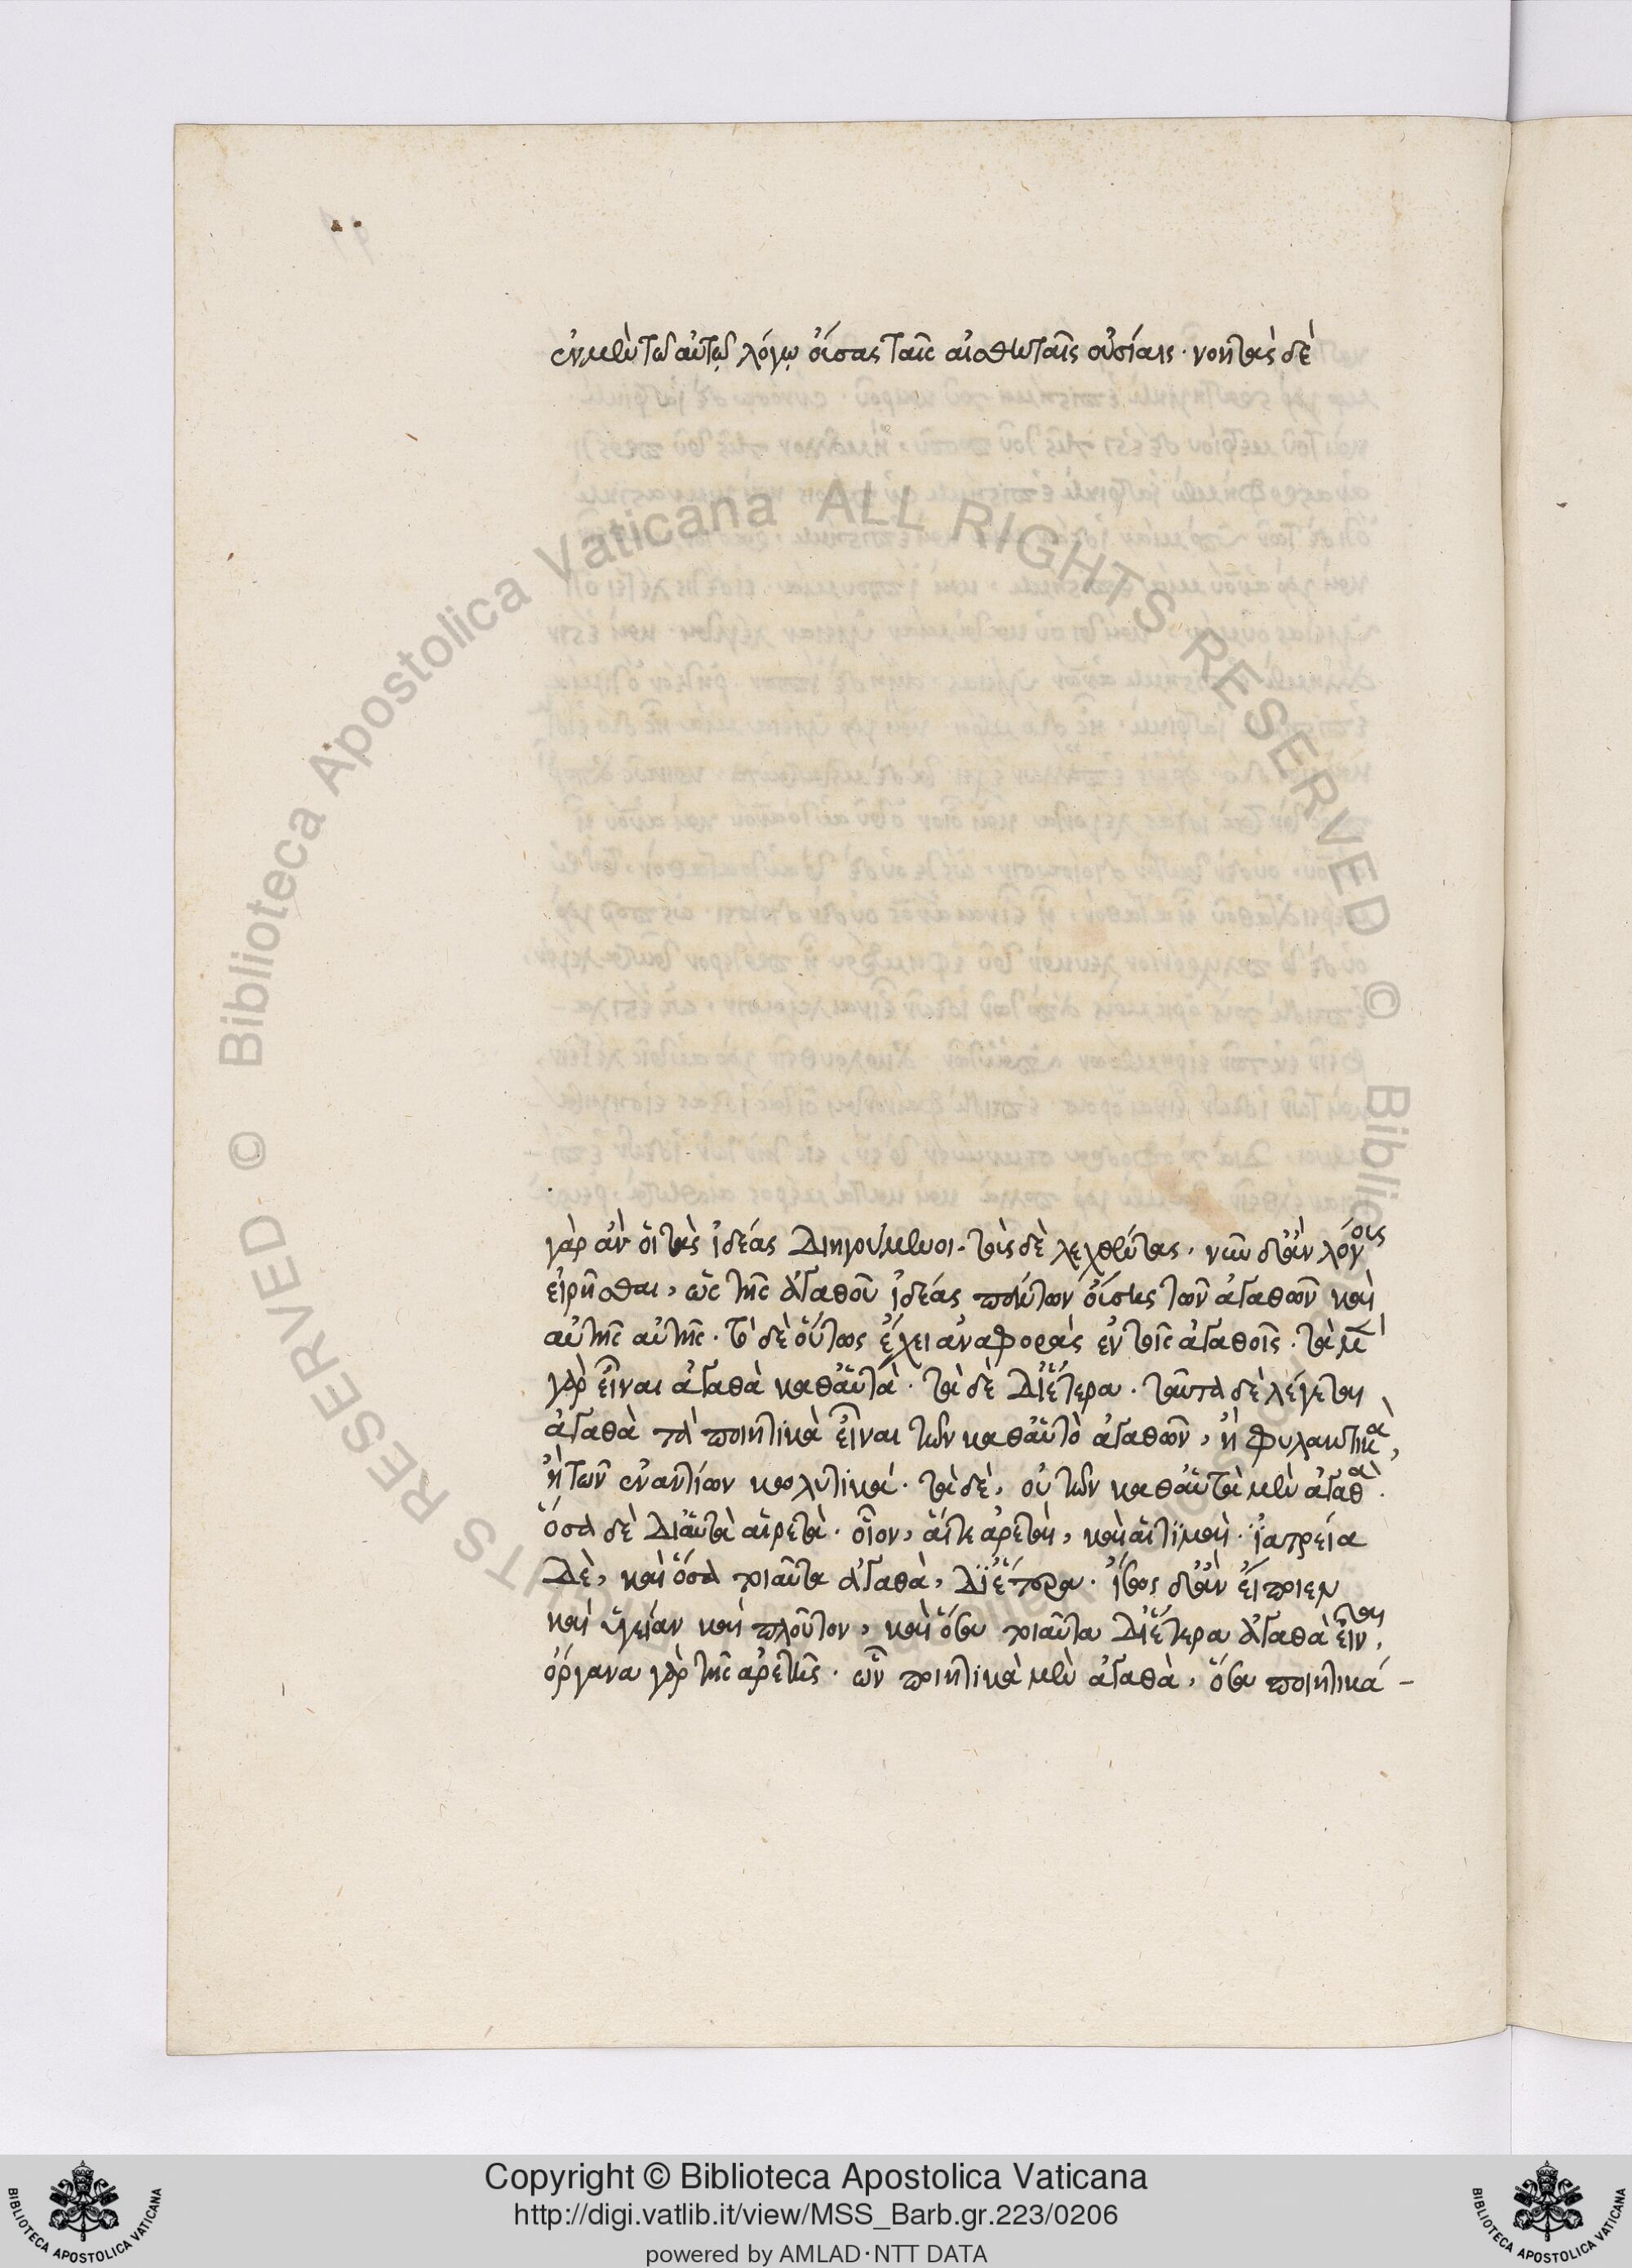 ἐν μὲν τῶ αὐτῷ λόγῳ οὔσας ταῖς αἰσθηταῖς οὐσίαις· νοητὰς δὲ
γὰρ ἀν οἱ τὰς ἰδέας διηγούμενοι. τοῖς δὲ λεχθεῖσας. νῦν λόγοις
εἰρῆσθαι, ὡς τῆς ἀγαθοῦ ἰδέας πάντων οὔσης τῶν ἀγαθῶν καὶ
αὐτῆς αὐτῆς. τὸ δὲ οὕτως ἔχει ἀναφορὰς ἐν τοῖς ἀγαθοῖς. τὰ μὲν
γὰρ εἶναι ἀγαθὰ καθ' αὑτά. τὰ δὲ δι' ἕτερα. ταῦτα δὲ λέγεται
ἀγαθὰ τὰ ποιητικὰ εἶναι τῶν καθ' αὑτὸ ἀγαθῶν, ἢ φυλακτικὰ,
ἢ τῶν ἐναντίων κωλυτικά. τὰ δὲ, οὐ τῶν καθ' αὑτὰ μὲν ἀγαθὰ.
ὅσα δὲ δι' αὑτὰ αἱρετά. οἷον, αἵ τε ἀρεταὶ, καὶ αἱ τιμαί. ἰατρεία
δὲ, καὶ ὅσα τοιαῦτα ἀγαθὰ, δι' ἕτερα. ἴσως δ' ἂν εἴποιεν
καὶ ὑγείαν καὶ πλοῦτον, καὶ ὅσα τοιαῦτα δι' ἕτερα ἀγαθὰ εἶναι,
ὄργανα γὰρ τῆς ἀρετῆς. ὧν ποιητικὰ μὲν ἀγαθὰ, ὅσα ποιητικά –
Biblioteca Apostolica Vaticana ALL RIGHTS RESERVED ©
Copyright © Biblioteca Apostolica Vaticana
http://digi.vatlib.it/view/MSS_Barb.gr.223/0206
powered by AMLAD·NTT DATA
BIBLIOTECA APOSTOLICA VATICANA
BIBLIOTECA APOSTOLICA VATICANA